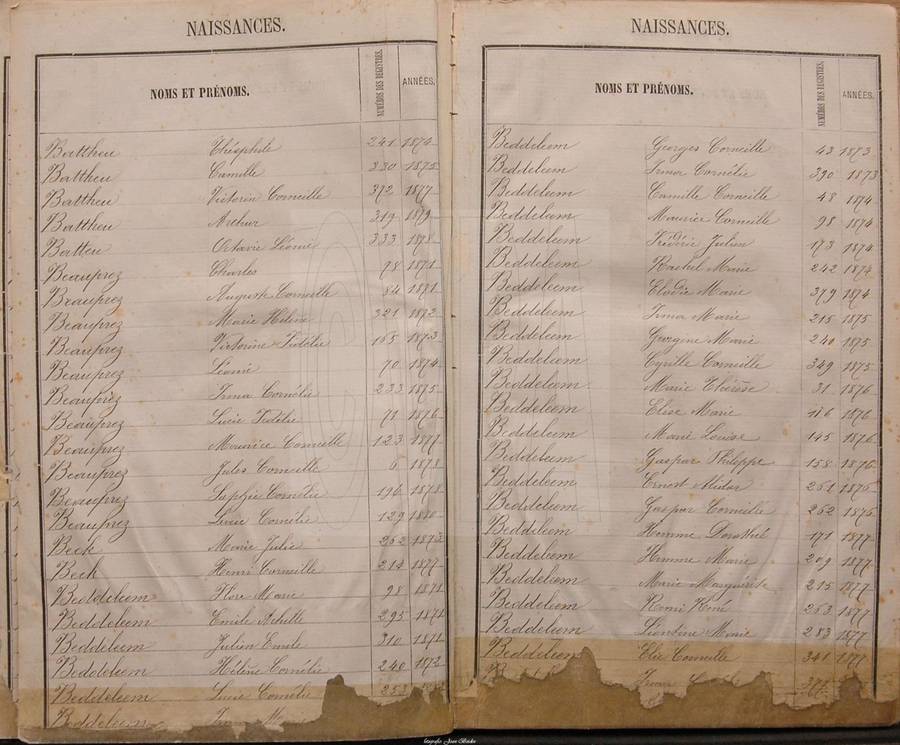 NAISSANCES.
NOMS ET PRÉNOMS. NUMÉROS DES REGISTRES. ANNÉES.
Battheu Théophile 241 1874
Battheu Camille 330 1875
Battheu Victorin Corneille 372 1877
Battheu Arthur 319 1879
Batteu Octavie Léonie 333 1878
Beauprez Charles 78 1871
Beauprez Auguste Corneille 84 1871
Beauprez Marie Helène 321 1872
Beauprez Victorine Fidélie 165 1873
Beauprez Léonie 70 1874
Beauprez Irma Cornélie 233 1875
Beauprez Lucie Fidélie 1876
Beauprez Maurice Corneille 123 1877
Beauprez Jules Corneille 6 1878
Beauprez Sophie Cornélie 196 1878
Beauprez Lucie Cornélie 129 1880
Beck Marie Julie 262
Beck Henri Corneille 214 1877
Beddeleem Flore Marie 98 1871
Beddeleem Emile Achille 295 1871
Beddeleem Julien Emile 310 1871
Beddeleem Hélène Cornélie 240 1872
Beddeleem Lucie Cornélie
Beddeleem Irma
NAISSANCES.
NOMS ET PRÉNOMS. NUMÉROS DES REGISTRES. ANNÉES.
Beddeleem Georges Corneille 43 1873
Beddeleem Irma Cornélie 390 1873
Beddeleem Camille Corneille 48 1874
Beddeleem Maurice Corneille 98 1874
Beddeleem Julien 173 1874
Beddeleem Rachel Marie 242 1874
Beddeleem Elodie Marie 379 1874
Beddeleem Irma Marie 215 1875
Beddeleem Georgine Marie 240 1875
Beddeleem Cyrille Corneille 349 1875
Beddeleem Marie Thérèse 31 1876
Beddeleem Elise Marie 116 1876
Beddeleem Marie Louise 145 1876
Beddeleem Gaspar Philippe 158 1876
Beddeleem Ernest Médar 261 1876
Beddeleem Gaspar Corneille 262 1876
Beddeleem 171 1877
Beddeleem Marie 209 1877
Beddeleem Marie Marguérite 215 1877
Beddeleem Remi 263 1877
Beddeleem Léontine Marie 283 1877
Beddeleem Elie Corneille 341 1877